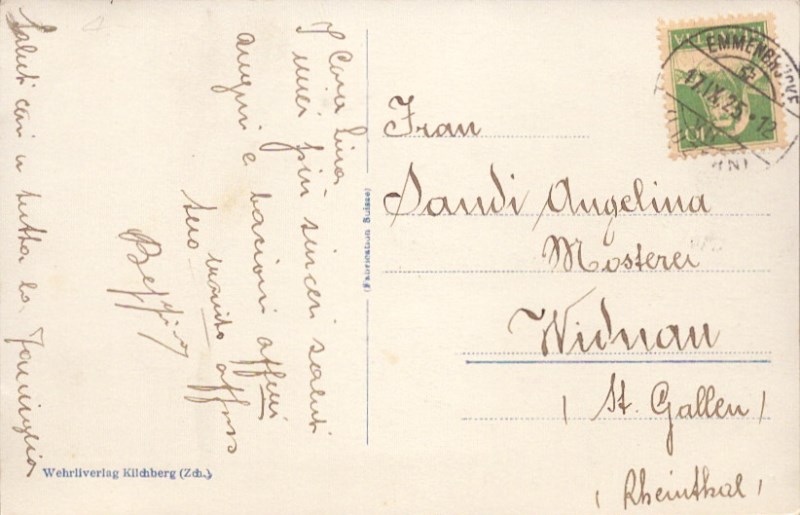 Cara Lina
I miei più sinceri saluti
auguri e bacioni affmi
tuo marito affmo
Beppino
Saluti cari a tutta la Famiglia
Wehrliverlag Kilchberg (Zch.)
(Fabrication Suisse)
EMMENBRÜCKE
17.IX.25-12
10
Frau
Sandi Angelina
Mosterei
Widnau
(St. Gallen)
(Rheinthal)